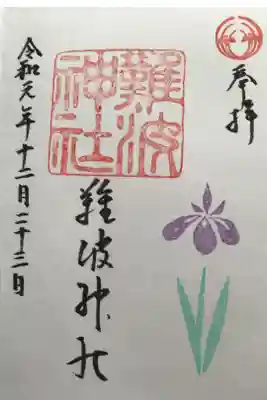 奉拝
難波神社
難波神社
令和元年十二月二十三日